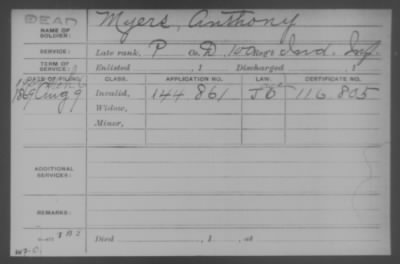 DEAD
NAME OF SOLDIER: Myers, Anthony
SERVICE: Late rank, P Co. D, Reg't Ind. Inf.
TERM OF SERVICE: Enlisted , 1 Discharged , 1
DATE OF FILING. CLASS. APPLICATION NO. LAW. CERTIFICATE NO.
1869 Aug 9 Invalid, 144 861 116 805
Widow,
Minor,
ADDITIONAL SERVICES:
REMARKS:
Died , 1 , at